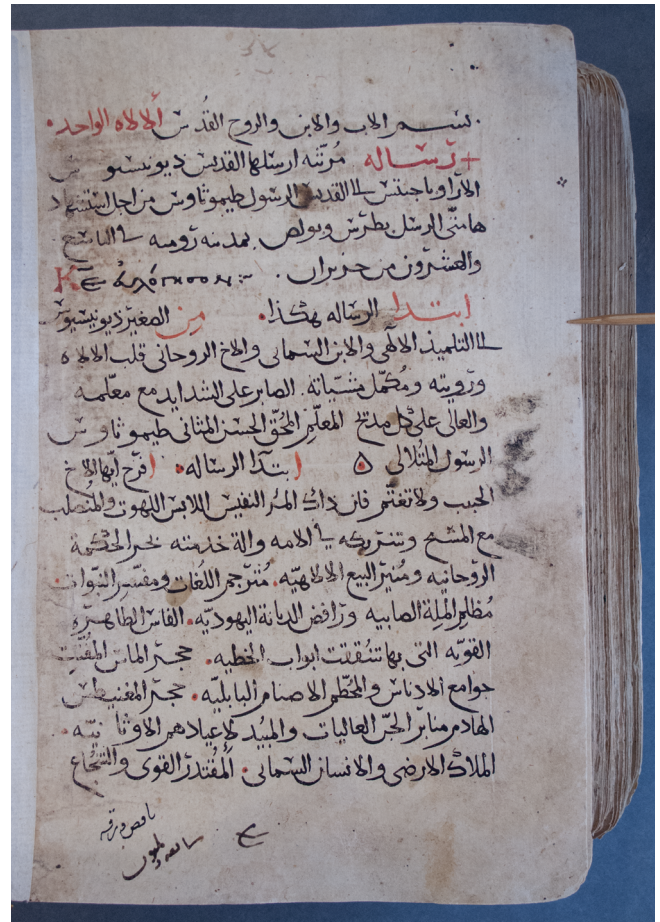 بسم الاب والابن والروح القدس ألالاه الواحد.
+ رساله مرتنه ارسلها القديس ديونيسيوس
الارا وباجيتس الى القديس الرسول طيموثاوس من اجل استشهاد
هامتى الرسل بطرس وبولص بمدينه رومية فى التاسع
والعشرون من حزيران.
ابتدا الرساله هكذا. من الصغير ديونيسيوس
الى التلميذ الالهى والابن السمائى والاخ الروحانى قلب الالاه
ورويته ومكمل مشياته. الصابر على الشدايد مع معلمه
والعالى على كل مديح المعلم المحق الحسن المثانى طيموثاوس
الرسول المتلالى ابتدآ الرساله. افرح ايها الاخ
الحبيب ولا تغتم فان ذاك المر النفيس اللابس اللاهوت والمنصلب
مع المسيح وشريكه فى الامه والة خدمته بحر الحكمة
الروحانيه ومنير البيع الالاهيه. مترجم اللغات ومفسر النبوات.
مظلم الملة الصابيه ورافض الديانة اليهوديه. الفاس الطاهرة
القويه التى بها تنقت ابواب الخطيه. حجر الماس المفتت
جوامع الادناس والمحطم الاصنام البابليه. حجر المغنيطس
الهادم منابر الجن العاليات والمبيد لاعيادهم الاوثانيه.
الملاك الارضى والانسان السمائى. المقتدر القوى والشجاع
ناقص ورقه